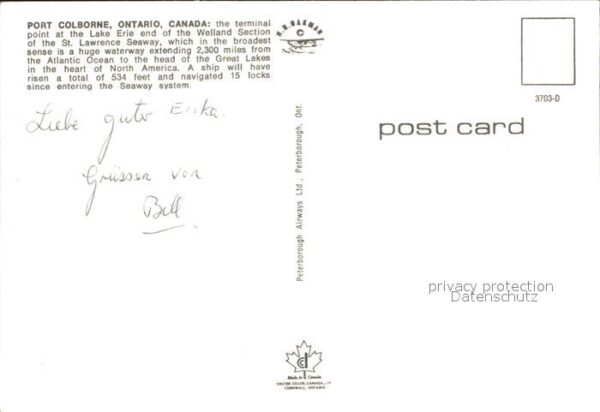 PORT COLBORNE, ONTARIO, CANADA: the terminal
point at the Lake Erie end of the Welland Section
of the St. Lawrence Seaway, which in the broadest
sense is a huge waterway extending 2,300 miles from
the Atlantic Ocean to the head of the Great Lakes
in the heart of North America. A ship will have
risen a total of 534 feet and navigated 15 locks
since entering the Seaway system.
Liebe guter Erika.
Grüssen von
Bill
H.R. OAKMAN
Peterborough Airways Ltd., Peterborough, Ont.
Made in Canada
CORNWALL, ONTARIO
3703-D
post card
privacy protection
Datenschutz